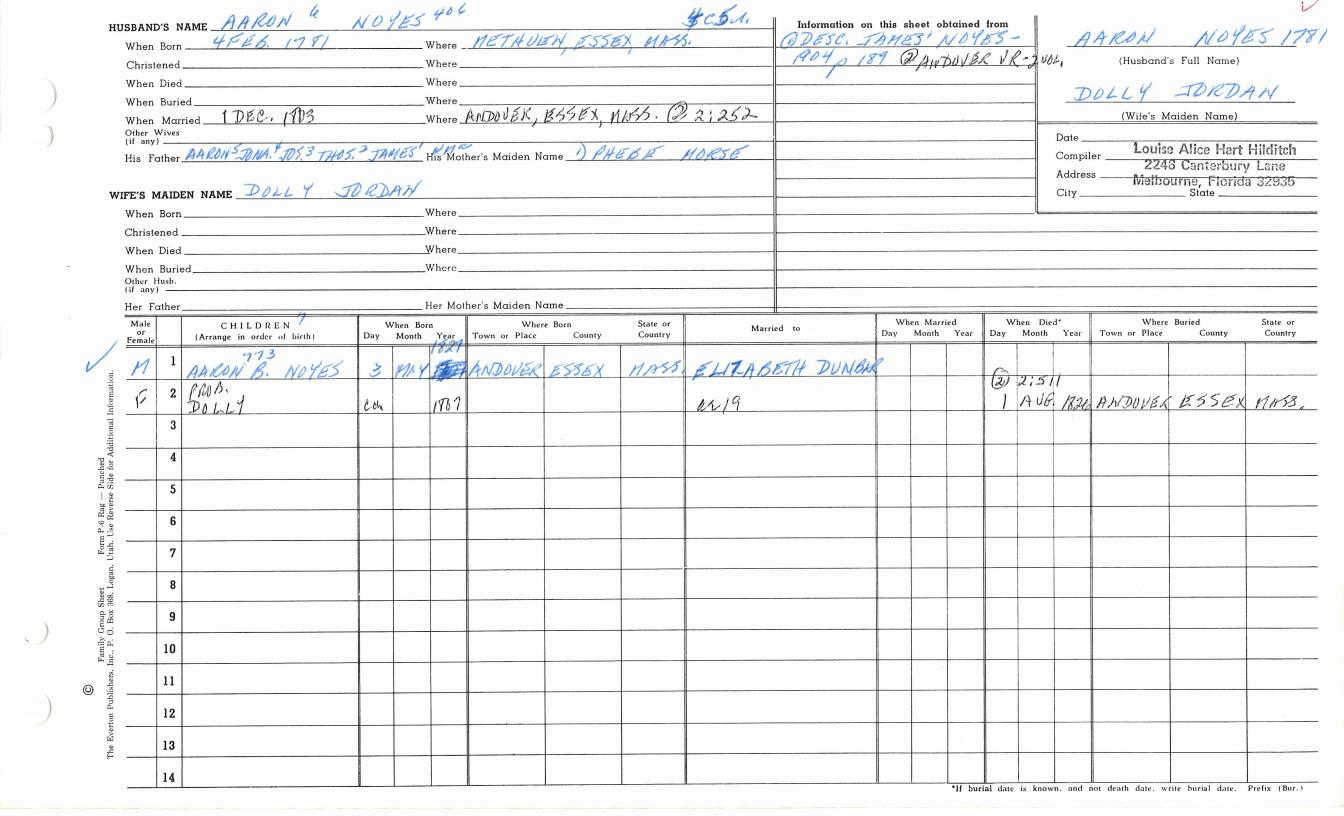 HUSBAND'S NAME AARON 6 NOYES 406
When Born 4 FEB. 1781 Where METHUEN, ESSEX, MASS.
Christened Where
When Died Where
When Buried Where
When Married 1 DEC. 1803 Where ANDOVER, ESSEX, MASS. (2) 2:252
Other Wives
(if any)
His Father AARON5 JONA.4 JOS.3 THOS.2 JAMES1 His Mother's Maiden Name 1) PHEBE MORSE
WIFE'S MAIDEN NAME DOLLY JORDAN
When Born Where
Christened Where
When Died Where
When Buried Where
Other Husb.
(if any)
Her Father Her Mother's Maiden Name
Information on this sheet obtained from
(1) DESC. JAMES' NOYES -
1904 p 189 (2) ANDOVER VR-2 VOL.
AARON NOYES 1781
(Husband's Full Name)
DOLLY JORDAN
(Wife's Maiden Name)
Date
Compiler Louise Alice Hart Hilditch
Address 2248 Canterbury Lane
Melbourne, Florida 32935
City State
Male or Female CHILDREN 7 (Arrange in order of birth) When Born Day Month Year Where Born Town or Place County State or Country Married to When Married Day Month Year When Died* Day Month Year Where Buried Town or Place County State or Country
1 M 773 AARON B. NOYES 3 MAY 1827 ANDOVER ESSEX MASS. ELIZABETH DUNBAR
2 F PROB. DOLLY 1807 19 (2) 2:511 1 AUG. 1826 ANDOVER ESSEX MASS.
3
4
5
6
7
8
9
10
11
12
13
14
*If burial date is known, and not death date, write burial date. Prefix (Bur.)
© Family Group Sheet Form P-6 Rag — Punched
The Everton Publishers, Inc., P. O. Box 368, Logan, Utah. Use Reverse Side for Additional Information.